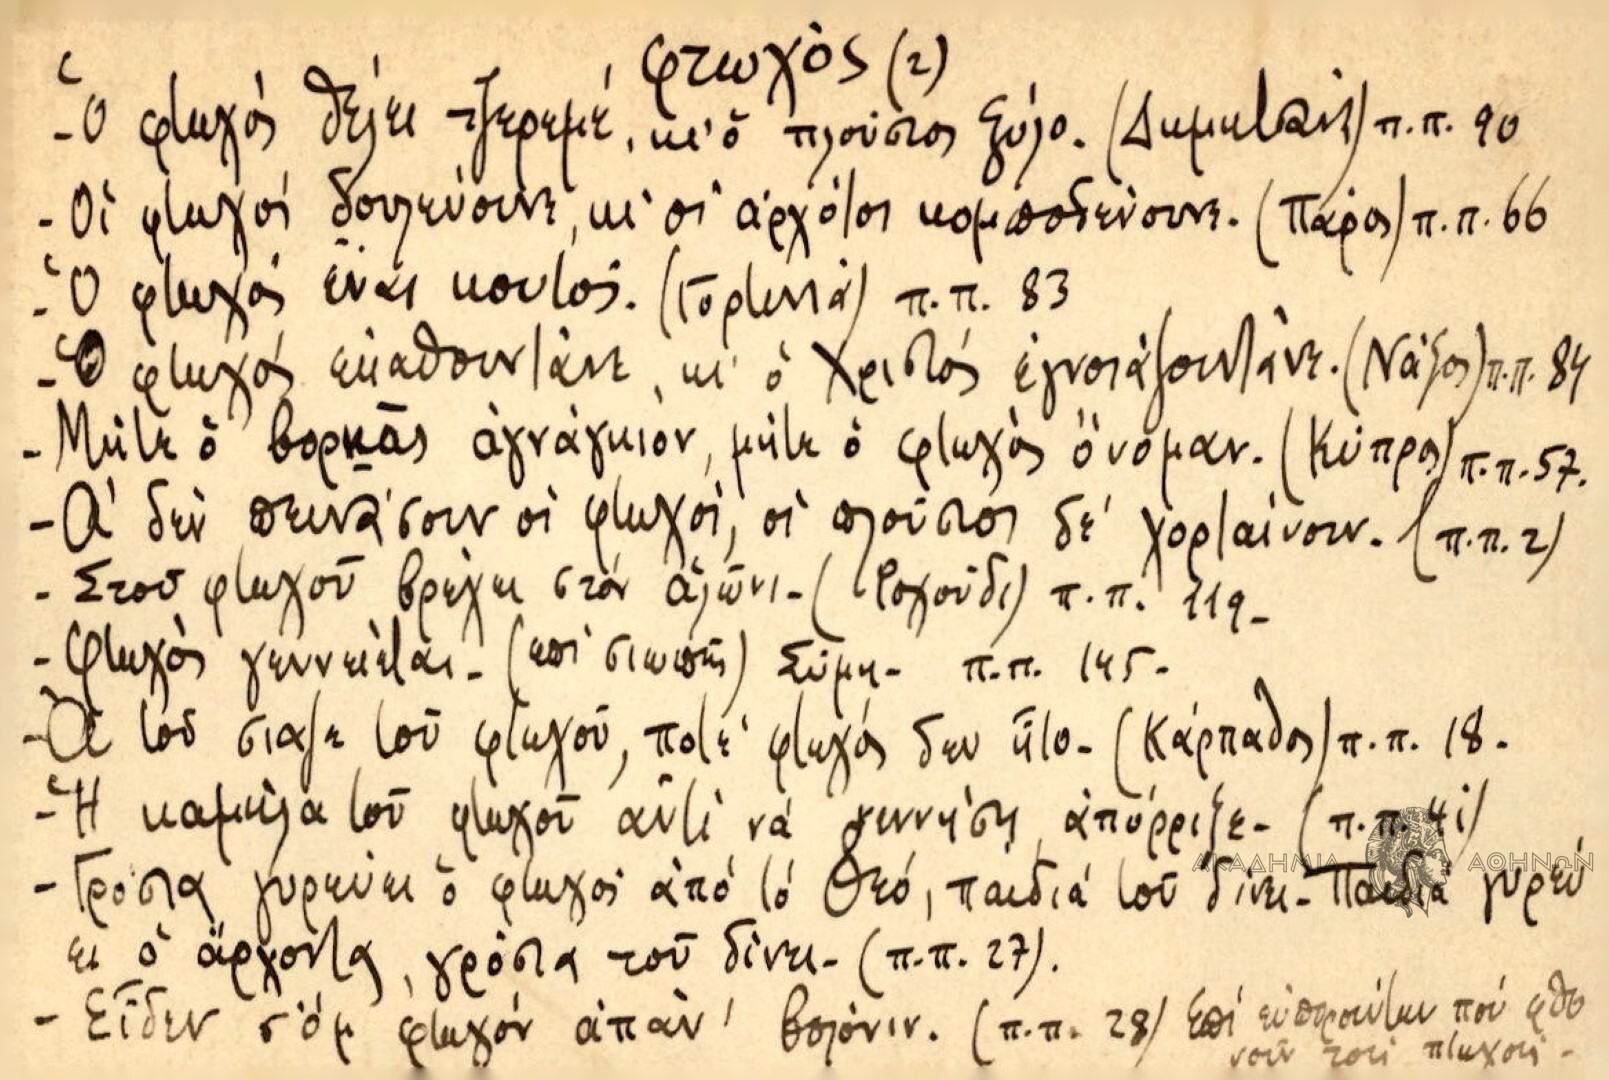 φτωχὸς (2)
- Ὁ φτωχὸς θέλει τζερεμέ, κι' ὁ πλούσιος ξύλο. (Δημητσάν.) π.π. 90
- Οἱ φτωχοί δουλεύουνε, κι' οἱ ἀρχόντοι κομποδένουνε. (Πάρος) π.π. 66
- Ὁ φτωχός εἶναι κουτός. (Γορτυνία) π.π. 83
- Ὁ φτωχός εκαθουντάνε, κι' ὁ Χριστός ἐγνοιάζουντάνε. (Νάξος) π.π. 84
- Μήτε ὁ βορκᾶς ἀγνάγκιόν, μήτε ὁ φτωχὸς ὄνομαν. (Κύπρος) π.π. 57.
- Ἀ' δεν πεινά'σουν οἱ φτωχοί, οἱ πλούσιοι δε' χορταίνουν. (π.π. 2)
- Στοῦ φτωχοῦ βρέχει στόν ἁλῶνι - (Ροχούδι) π.π. 119 -
- Φτωχὸς γεννιέται - (ἐπί σιωπῆς) Σύμη - π.π. 145 -
- Ἀ τοῦ σιαζε τοῦ φτωχοῦ, ποτέ φτωχός δεν ἦτο - (Κάρπαθος) π.π. 18 -
- Ἡ καμήλα τοῦ φτωχοῦ αντί νά γεννήση ἀπόρριξε - (π.π. 41)
- Γρόσια γυρεύει ὁ φτωχός ἀπό τό Θεό, παιδιά τοῦ δίνει - Παιδιά γυρεύ
ει ὁ ἄρχοντας, γρόσια τοῦ δίνει - (π.π. 27).
- Εἶδεν τ'όμ φτωχόν ἀπάν' βολόνιν. (π.π. 28) Ἐπί των που φθο
νοῦν τους πτωχούς -
ΑΚΑΔΗΜΙΑ ΑΘΗΝΩΝ